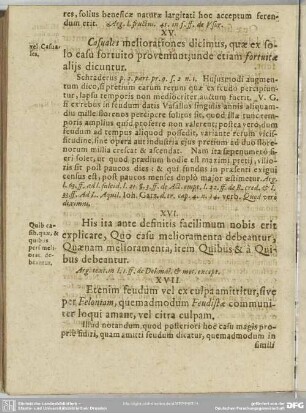 res, sollus beneficæ naturæ largitati hoc acceptum feren-
dum erit. Arg. l. fructus. 45. in f. ff. de Usur.
XV.
vel Casua-
les.
Casuales meliorationes dicimus, quæ ex so-
lo casu fortuito proveniunt; unde etiam fortuitæ
alijs dicuntur.
Schraderus p. 2. part. pr. 9. f. 2 n. 1. Hujusmodi augmen-
tum dico, si pretium earum rerum quæ ex feudo percipiun-
tur, lapsu temporis non mediocriter auctum fuerit. V. G.
si ex rebus in feudum datis Vasallus singulis annis aliquan-
diu mille florenos percipere solitus sit, quod illæ tunc
amplius quid proferre non valerent; postea vero
feudum ad tempus aliquod possedit, variante rerum vicis-
situdine, sine opera aut industria ejus pretium ad duo flore-
norum millia crescat & ascendat. Nam ita sæpenumero fi-
eri solet, ut quod prædium hodie est maximi pretij, viliо-
ris sit post paucos dies: & qui fundus in præsenti exigui
census est, post paucos menses duplo major æstimetur. Arg.
XVI.
Quib. ca-
sib. quæ &
à quibus
peti meli-
orat. de-
beantur.
His ita ante definitis facilimum nobis erit
explicare, Quo casu melioramenta debeantur,
Quænam melioramenta, item Quibus & à Qui-
bus debeantur.
XVII
Etenim feudum vel ex culpa amittitur, sive
per Feloniam, quemadmodum Feudistæ communi-
ter loqui amant, vel citra culpam.
Illud notandum, quod posteriori hoc casu magis pro-
prie finiri, quam amitti feudum dicatur, quemadmodum in
simili